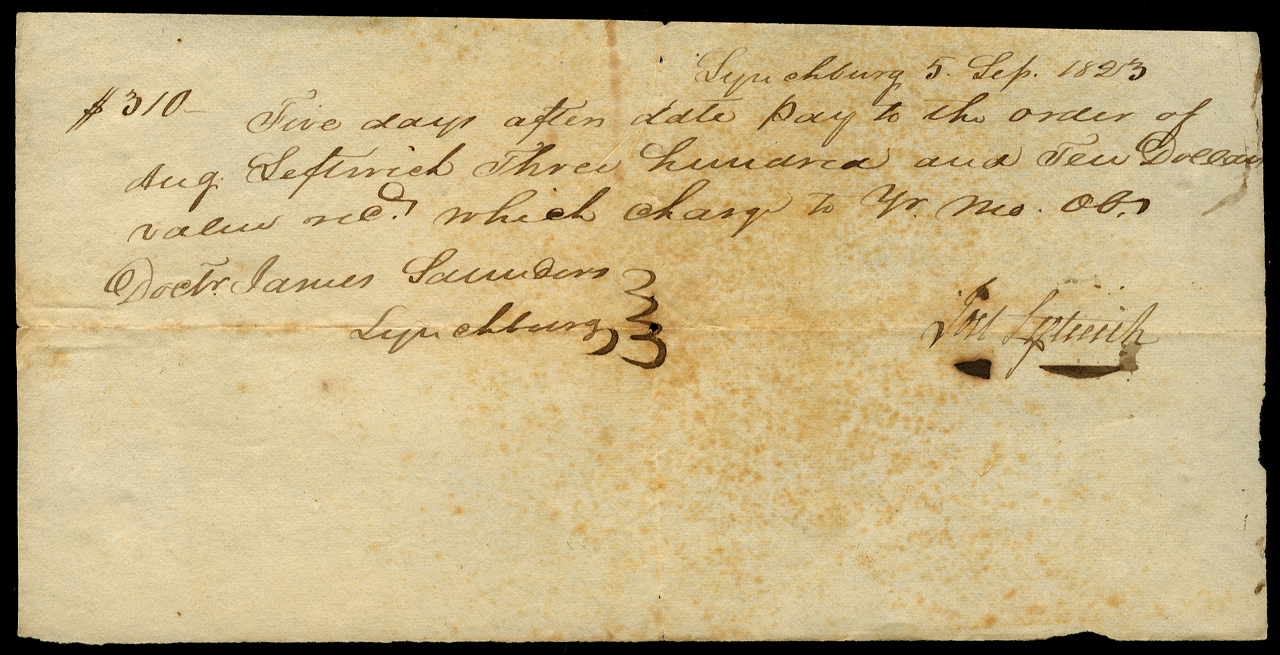 Lynchburg 5. Sep. 1823
$310-
Five days after date pay to the order of
Aug. Leftwich Three hundred and Ten Dollars
value recd. which charge to Yr. Mo. Ob.
Doctr. James Saunders
Lynchburg
Joel Leftwich